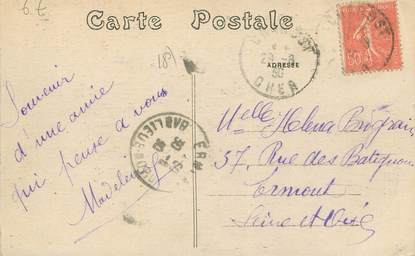 6.€
Carte Postale
ADRESSE
CHER
Souvenir
d'une amie
qui pense a vous
Madeleine
Melle Helena
37, Rue des Batignolles
Ermont
Seine et Oise